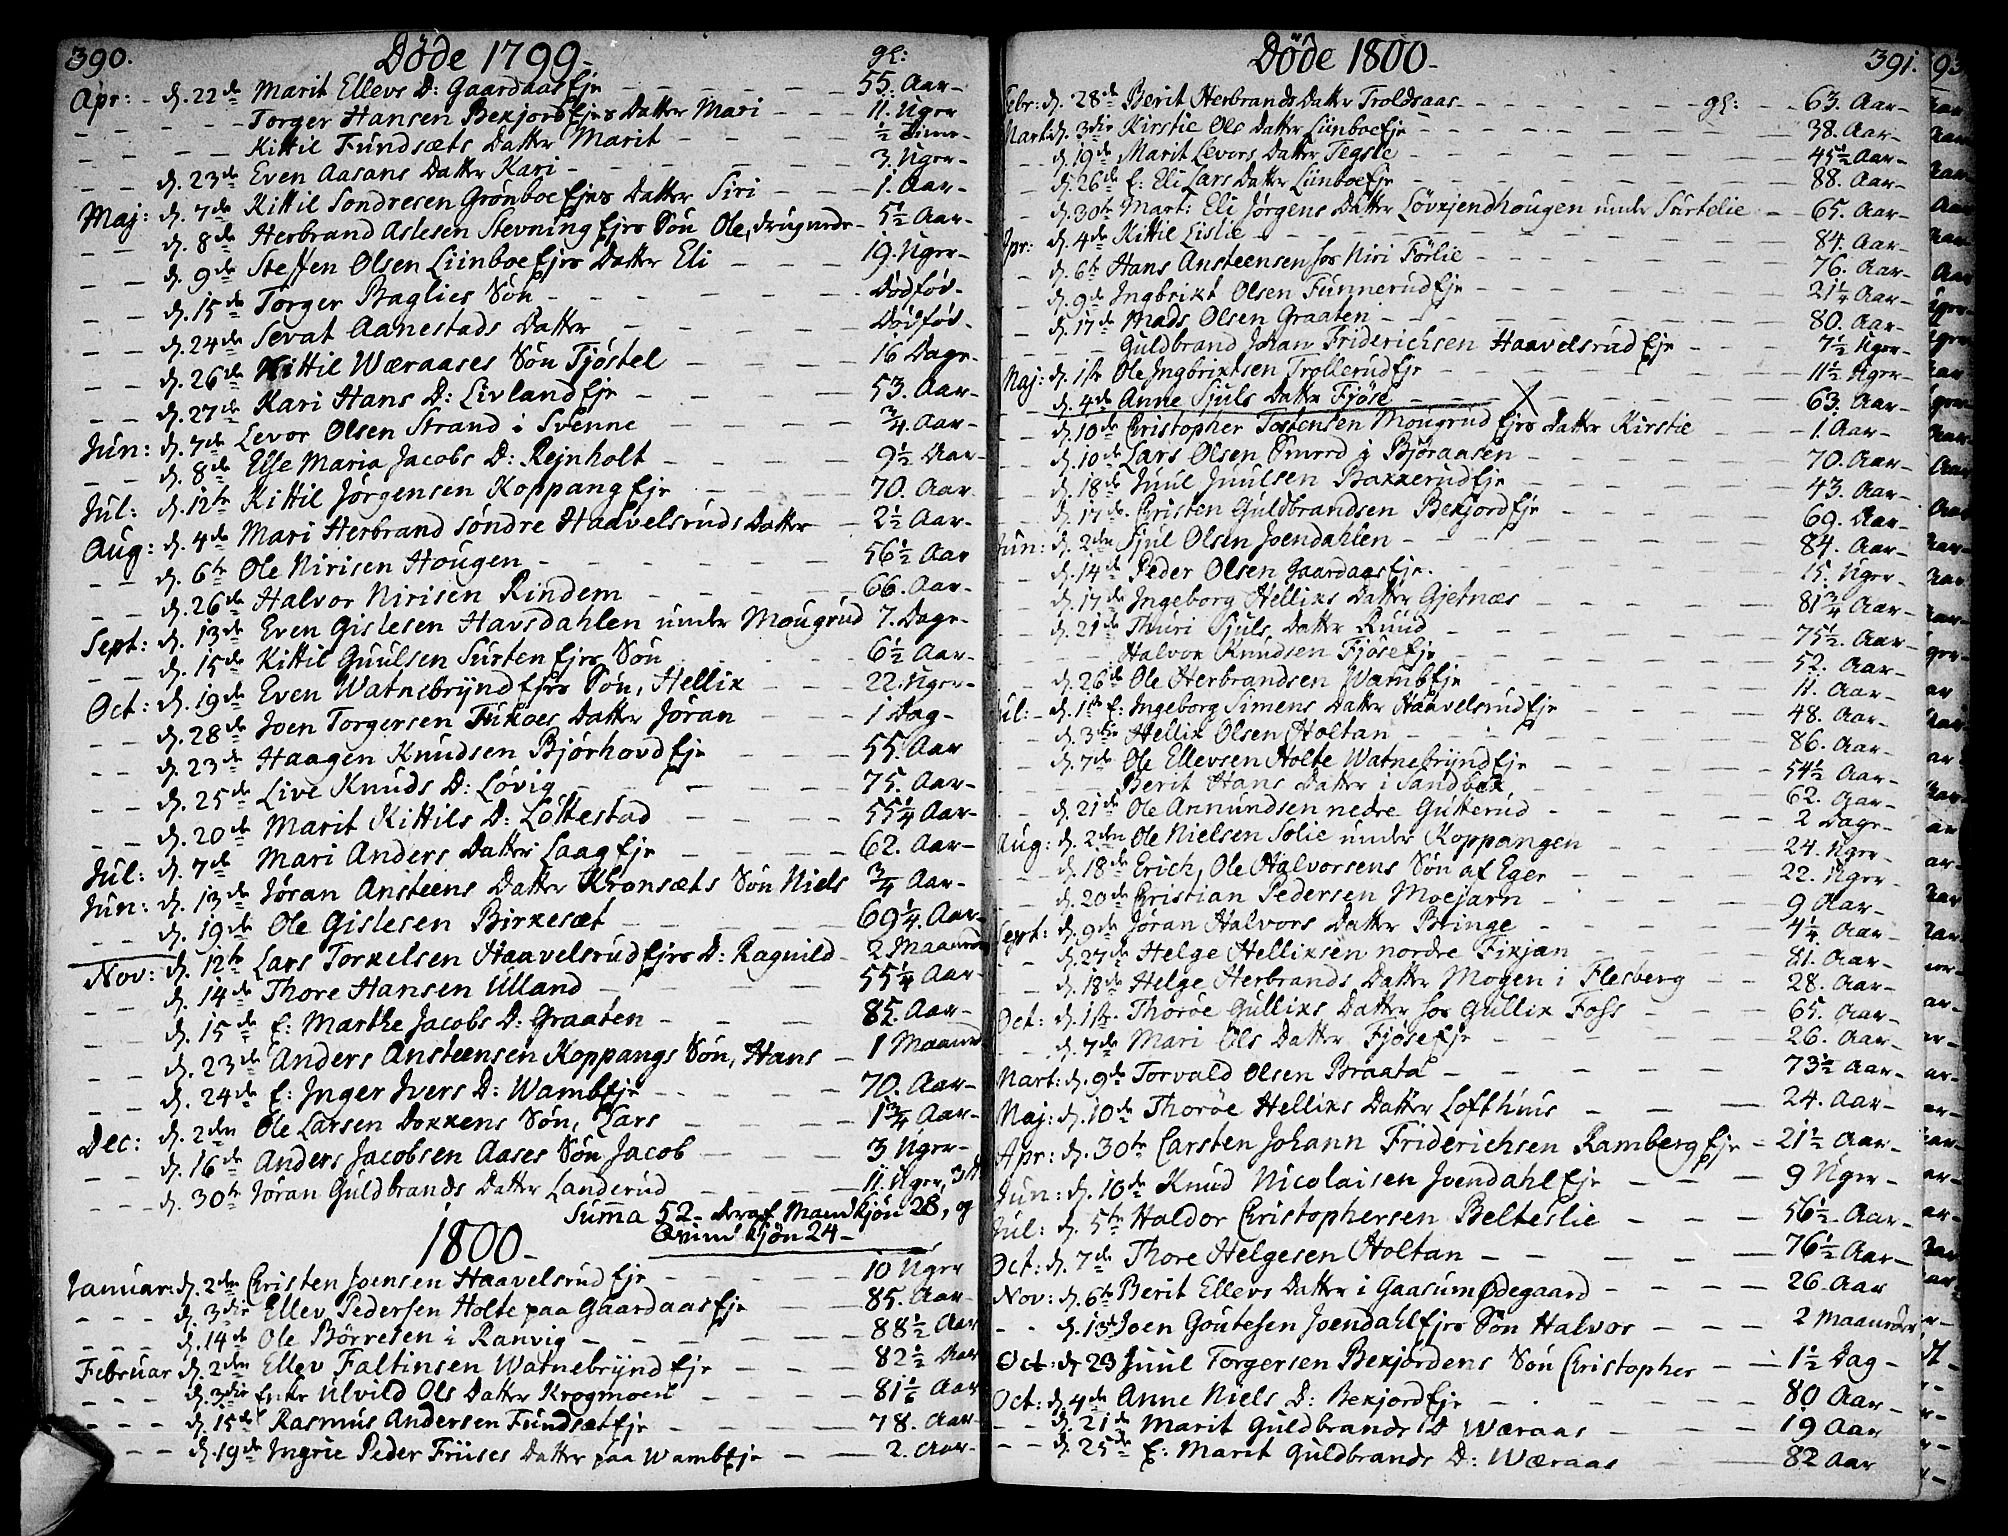 390.
Døde 1799.
gl:
Apr: d. 22de Marit Ellevs D: Gaardaas Eje 55. Aar
Torger Hansen Bekjord Ejes Datter Mari 11. Uger
Kittil Fundsæts Datter Marit ½ Time
d. 23de Even Aasans Datter Kari 3. Uger
Maj: d. 7de Kittil Sondresen Grønboe Ejes Datter Siri 1. Aar
d. 8de Herbrand Aslesen Stevning Ejes Søn Ole, 5½ Aar
d. 9de Steffen Olsen Liinboe Ejes Datter Eli 19. Uger
d. 15de Torger Baglies Søn Dødfød
d. 24de Sevat Aanestads Datter Dødfød
d. 26de Kittil Wæraases Søn Tjøstel 16 Dage
d. 27de Kari Hans D: Livland Eje 53. Aar
Jun: d. 7de Levor Olsen Strand i Svenne ¾ Aar
d. 8de Else Maria Jacobs D: Rejnholt 9½ Aar
Jul: d. 12te Kittil Jørgensen Koppang Eje 70. Aar
Aug: d. 4de Mari Herbrand søndre Haavelsruds Datter 2½ Aar
d. 6te Ole Nirisen Hougen 56½ Aar
d. 26de Halvor Nirisen Rindem 66. Aar
Sept: d. 13de Even Gislesen Havsdahlen under Mougrud 7. Dage
d. 15de Kittil Guulsen Surten Ejes Søn 6½ Aar
Oct: d. 19de Even Watnebrÿnd Ejes Søn, Hellik 22. Uger
d. 28de Joen Torgersen Tukoes Datter Jøran 1 Dag
d. 23de Haagen Knudsen Bjørhovd Eje 55. Aar
d. 25de Live Knuds D: Løvig 75. Aar
d. 20de Marit Kittils D: Løttestad 55¼ Aar
Jul: d. 7de Mari Anders Datter Laag Eje 62. Aar
Jun: d. 13de Jøran Ansteens Datter Kronsæts Søn Niels ¾ Aar
d. 19de Ole Gislesen Birkesæt 69¼. Aar
Nov: d. 12te Lars Torkelsen Haavelsrud Ejes D: Ragnild 2 Maaneder
d. 14de Thore Hansen Ulland 55¼ Aar
d. 15de E: Marthe Jacobs D: Graaten 85. Aar
d. 23de Anders Ansteensen Koppangs Søn, Hans 1 Maaned
d. 24de E: Inger Ivers D: Wamb Eje 70. Aar
Dec: d. 2den Ole Larsen Dokkens Søn, Lars 1¾ Aar
d. 16de Anders Jacobsen Aases Søn Jacob 3 Uger
d. 30te Jøran Guldbrands Datter Landerud 11. Uger,
Suma 52 Deraf Mandkjøn 28, og
Qvindkjøn 24
1800
Januar: d. 2den Christen Joensen Haavelsrud Eje 10 Uger
d. 3die Ellev Pedersen Holte paa Gaardaas Eje 85. Aar
d. 14de Ole Børresen i Ranvig 88½ Aar
Februar d. 2den Ellev Faltinsen Watnebrÿnd Eje 82½ Aar
d. 3die Enke Ulvild Ols Datter Krogmoen 81⅙ Aar
d. 15de Rasmus Andersen Fundsæt Eje 78. Aar
d. 19de Ingrie Peder Friises Datter paa Wamb Eje 2. Aar
Døde 1800
391.
Febr: d. 28de Berit Herbrands Datter Troldsaas gl: 63. Aar
Mart: d. 3die Kirstie Ols Datter Liinboe Eje 38. Aar
d. 19de Marit Levors Datter Tegsle 45½ Aar
d. 26de E: Eli Lars Datter Liinboe Eje 88. Aar
d. 30te Mart: Eli Jørgens Datter Løvkjendhougen under Surtelie 65. Aar
Apr: d. 4de Kittil Lislie 84. Aar
d. 6te Hans Ansteensen hos Niri Førlie 76. Aar
d. 9de Ingbrikt Olsen Funnerud Eje 21¼ Aar
d. 17de Mads Olsen Graaten 80. Aar
Guldbrand Johan Friderichsen Haavelsrud Eje 7½ Uger
Maj: d. 1ste Ole Ingbriktsen Trollerud Eje 11½ Uger
d. 4de Anne Sjuls Datter Fjøse X 63. Aar
d. 10de Christopher Tostensen Mougrud Ejes Datter Kirstie 1. Aar
d. 10de Lars Olsen Smed i Bjøraasen 70. Aar
d. 18de Juul Juulsen Bakkerud Eje 43. Aar
d. 17de Christen Guldbrandsen Bekjord Eje 69. Aar
Jun: d. 2den Sjul Olsen Joendahlen 84. Aar
d. 14de Peder Olsen Gaardaas Eje 15. Uger
d. 17de Ingeborg Helliks Datter Gjetnæs 81¾ Aar
d. 21de Thuri Sjuls Datter Ruud 75½. Aar
Halvor Knudsen Fjøse Eje 52. Aar
d. 26de Ole Herbrandsen Wamb Eje 11. Aar
Jul: d. 1ste E: Ingeborg Simens Datter Haavelsrud Eje 48. Aar
d. 3die Hellik Olsen Holtan 86. Aar
d. 7de Ole Ellevsen Holte Watnebrÿnd Eje 54½ Aar
Berit Hans Datter i Sandbæk 62. Aar
d. 21de Ole Annundsen nedre Gutterud 2 Dage
Aug: d. 2den Ole Nielsen Solie under Koppangen 24. Uger
d. 18de Erich, Ole Halvorsens Søn af Eger 22. Uger
d. 20de Christian Pedersen Moejarn 9 Aar
Sept: d. 9de Jøran Halvors Datter Bringe 4¼ Aar
d. 27de Helge Helliksen nordre Fikjan 81. Aar
d. 18de Helge Herbrands Datter Mogen i Flesberg 28. Aar
Oct: d. 1ste Thorøe Gulliks Datter hos Gullik Foss 65. Aar
d. 7de Mari Ols Datter Fjøse Eje 26. Aar
Mart: d. 9de Torvald Olsen Braata 73½ Aar
Maj: d. 10de Thorøe Helliks Datter Lofthuus 24. Aar
Apr: d. 30te Carsten Johann Friderichsen Ramberg Eje 21½ Aar
Jun: d. 16de Knud Nicolaisen Joendahl Eje 9 Uger
Jul: d. 5te Haldor Christophersen Belteslie 56½ Aar
Oct: d. 7de Thore Helgesen Holtan 76½ Aar
Nov: d. 6te Berit Ellevs Datter i Gaasum Ødegaard 26 Aar
d. 13de Joen Goutesen Joendahl Ejes Søn Halvor 2 Maaneder
Oct: d. 23 Juul Torgersen Bekjordens Søn Christopher 1½ Dag
Oct: d. 4de Anne Niels D: Bekjord Eje 80 Aar
d. 21de Marit Guldbrands D Wæraas 19 Aar
d. 25de E: Marit Guldbrands D: Wæraas 82 Aar